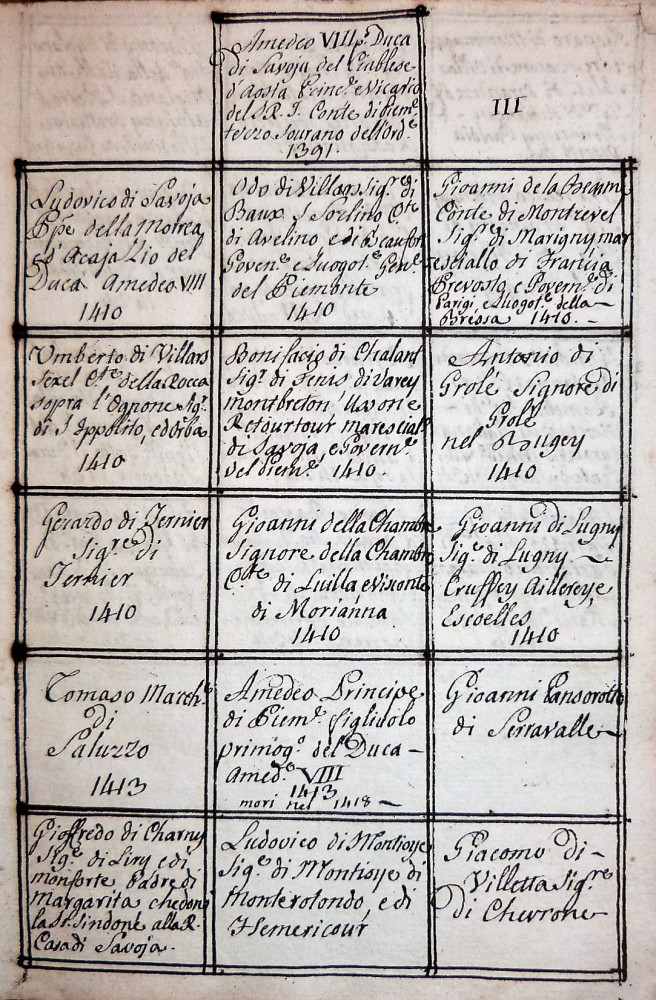 Amedeo VIII pº Duca
di Savoja del Ciablese
d'Aosta Princ.e e Vicario
del S. R. I. Conte di Piem.e
terzo Sourano dell'Ord.e
1391.
III
Ludovico di Savoja
Ppe della Morea
ed'Acaja Zio del
Duca Amedeo VIII
1410
Odo di Villars Sig.r di
Baux, S Sorlino C.te
di Avelino e di Beaufort
Govern.e e Luogot.e Gen.e
del Piemonte
1410
Gioanni de la Beaum
Conte di Montrevel
Sig.r di Marigny mar
esciallo di Francia
Prevosto e Govern.e di
Parigi e Luogot.e della
Bressa 1410.
Umberto di Villars
Sexel C.te della Rocca
sopra l'Ognone Sig.r
di S Ippolito, ed Orba
1410
Bonifacio di Chalant
Sig.r di Fenis di Varey
montbreton
Retourtour maresciall
di Savoja, e Govern.e
del Piem.e 1410.
Antonio di
Grolé Signore di
Grolé
nel Bugey
1410
Gerardo di Ternier
Sig.re di
Ternier
1410
Gioanni della Chambre
Signore della Chambre
C.te di Luilla e Visconte
di Morianna
1410
Gioanni di Lugny
Sig.e di Lugny
Cruffey Aillereye,
Escoelles
1410
Tomaso March.e
di
Saluzzo
1413
Amedeo Principe
di Piem.e figliuolo
primog.o del Duca
Amed.o VIII
1413
mori nel 1418
Gioanni Pansorotto
di Serravalle
Gioffredo di Charny
Sig.e di Liry e di
monforte Padre di
Margarita che donò
la SS. Sindone alla R.
Casa di Savoja.
Ludovico di Montioye
Sig.e di Montioye di
Monterotondo, e di
Hemericour
Giacomo di
Villetta Sig.re
di Chevrone